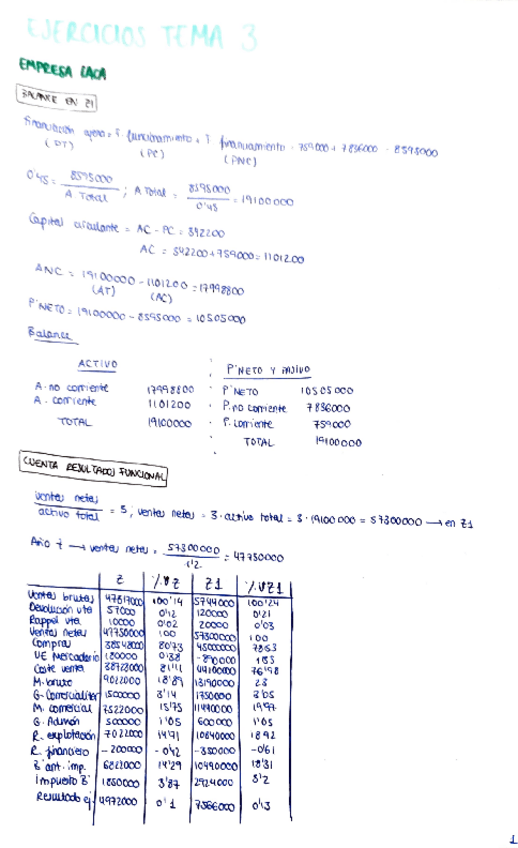 EJERCICIOS TEMA 3
EMPRESA LACA
BALANCE EN Z1
Financiación ajena = F. funcionamiento + F. financiamiento = 759000 + 7836000 = 8595000
(DT) (PC) (PNC)
0'45 = 8595000 / A Total ; A Total = 8595000 / 0'45 = 19100000
Capital circulante = AC - PC = 342200
AC = 342200 + 759000 = 1101200
ANC = 19100000 - 1101200 = 17998800
(AT) (AC)
P'NETO = 19100000 - 8595000 = 10505000
Balance
ACTIVO P'NETO Y PASIVO
A. no corriente 17998800 P'NETO 10505000
A. corriente 1101200 P. no corriente 7836000
TOTAL 19100000 P. corriente 759000
TOTAL 19100000
CUENTA RESULTADOS FUNCIONAL
ventas netas / activo total = 3 ; ventas netas = 3 · activo total = 3 · 19100000 = 57300000 → en Z1
Año Z → ventas netas = 57300000 / 1'2 = 47750000
Z %VZ Z1 %VZ1
Ventas brutas 47817000 100'14 57440000 100'24
Devolución vta 57000 0'12 120000 0'21
Rappel vta 10000 0'02 20000 0'03
Ventas netas 47750000 100 57300000 100
Compras 38548000 80'73 45000000
VE Mercadería 180000 0'38
Coste venta 38728000 81'11 44110000 76'98
M. bruto 9022000 18'89 13190000 23
G. Comercialización 1500000 3'14 1750000 3'05
M. comercial 7522000 15'75 11440000 19'97
G. Admón 500000 1'05 600000 1'05
R. explotación 7022000 14'71 10840000 18'92
R. financiero -200000 -0'42 -350000 -0'61
B' ant. imp. 6822000 14'29 10490000 18'31
Impuesto B' 1850000 3'87 2924000
Resultado ej. 4972000 0'1 7566000 0'13
1